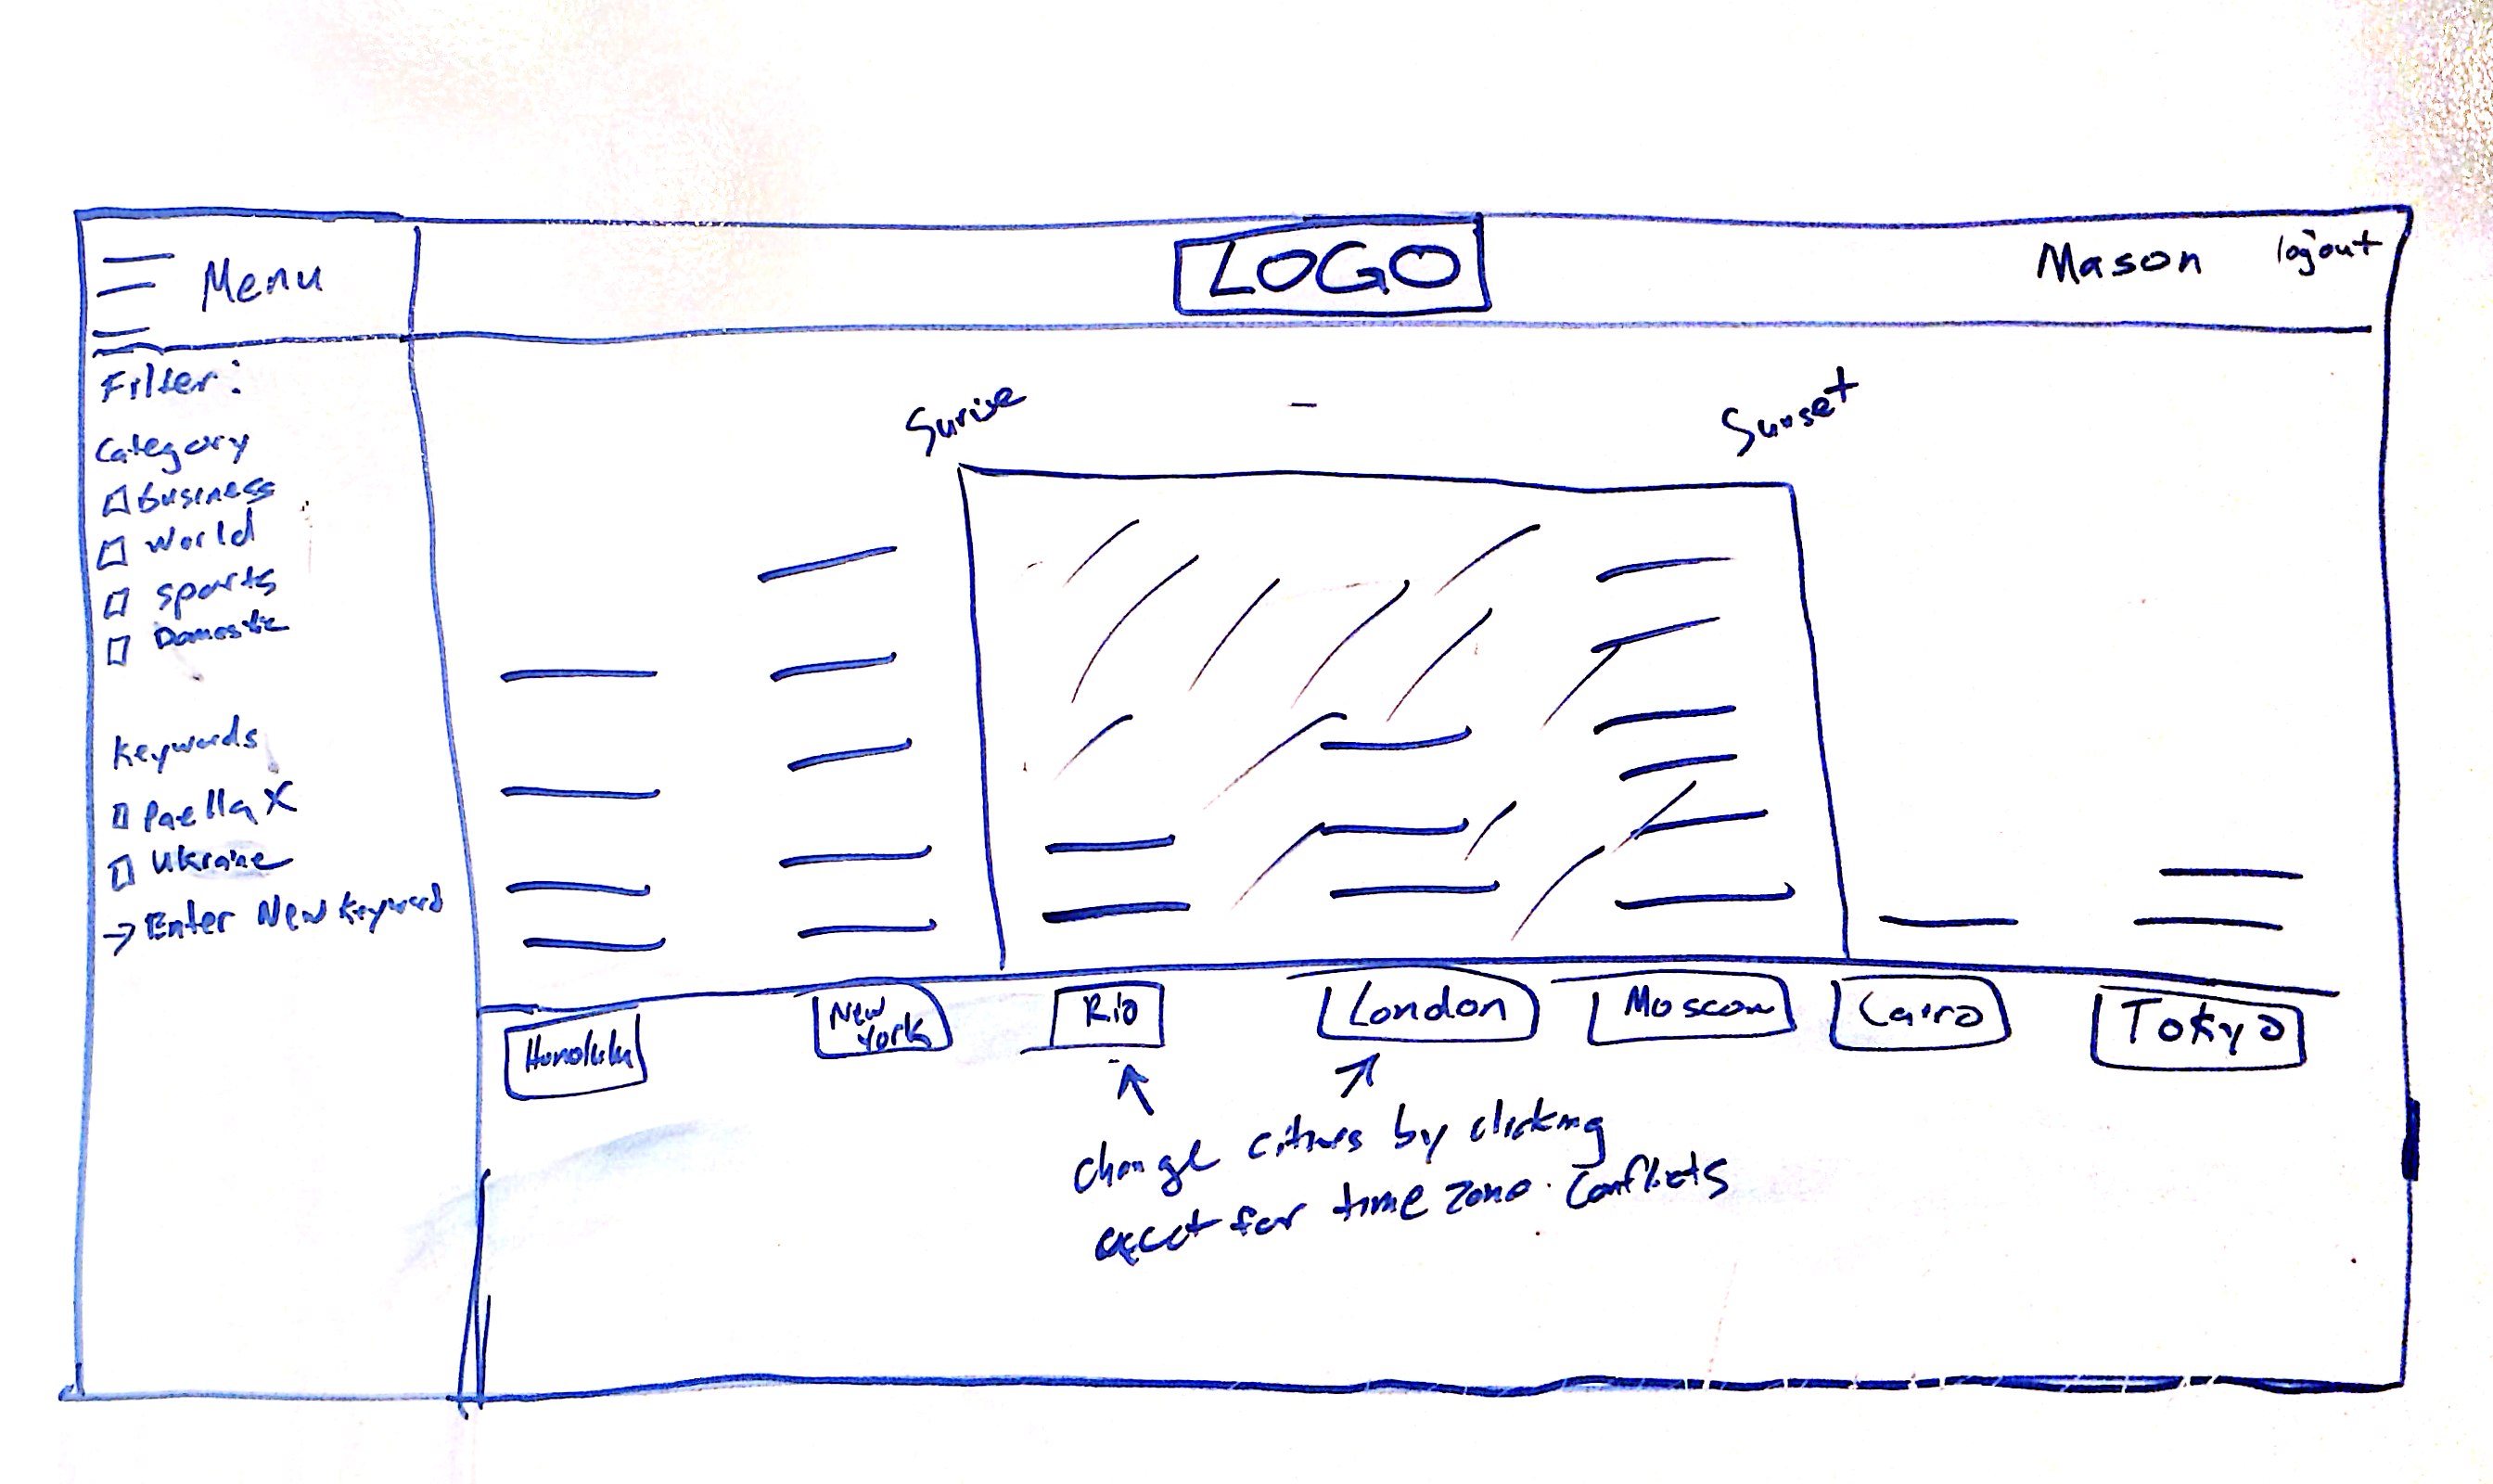 Menu
LOGO
Mason
logout
Filter:
Category
business
World
sports
Domestic
Keywords
Paella X
Ukraine
→ Enter New Keyword
Sunrise
Sunset
Honolulu
New
York
Rio
London
Moscow
Cairo
Tokyo
change by clicking
for time zone conflicts